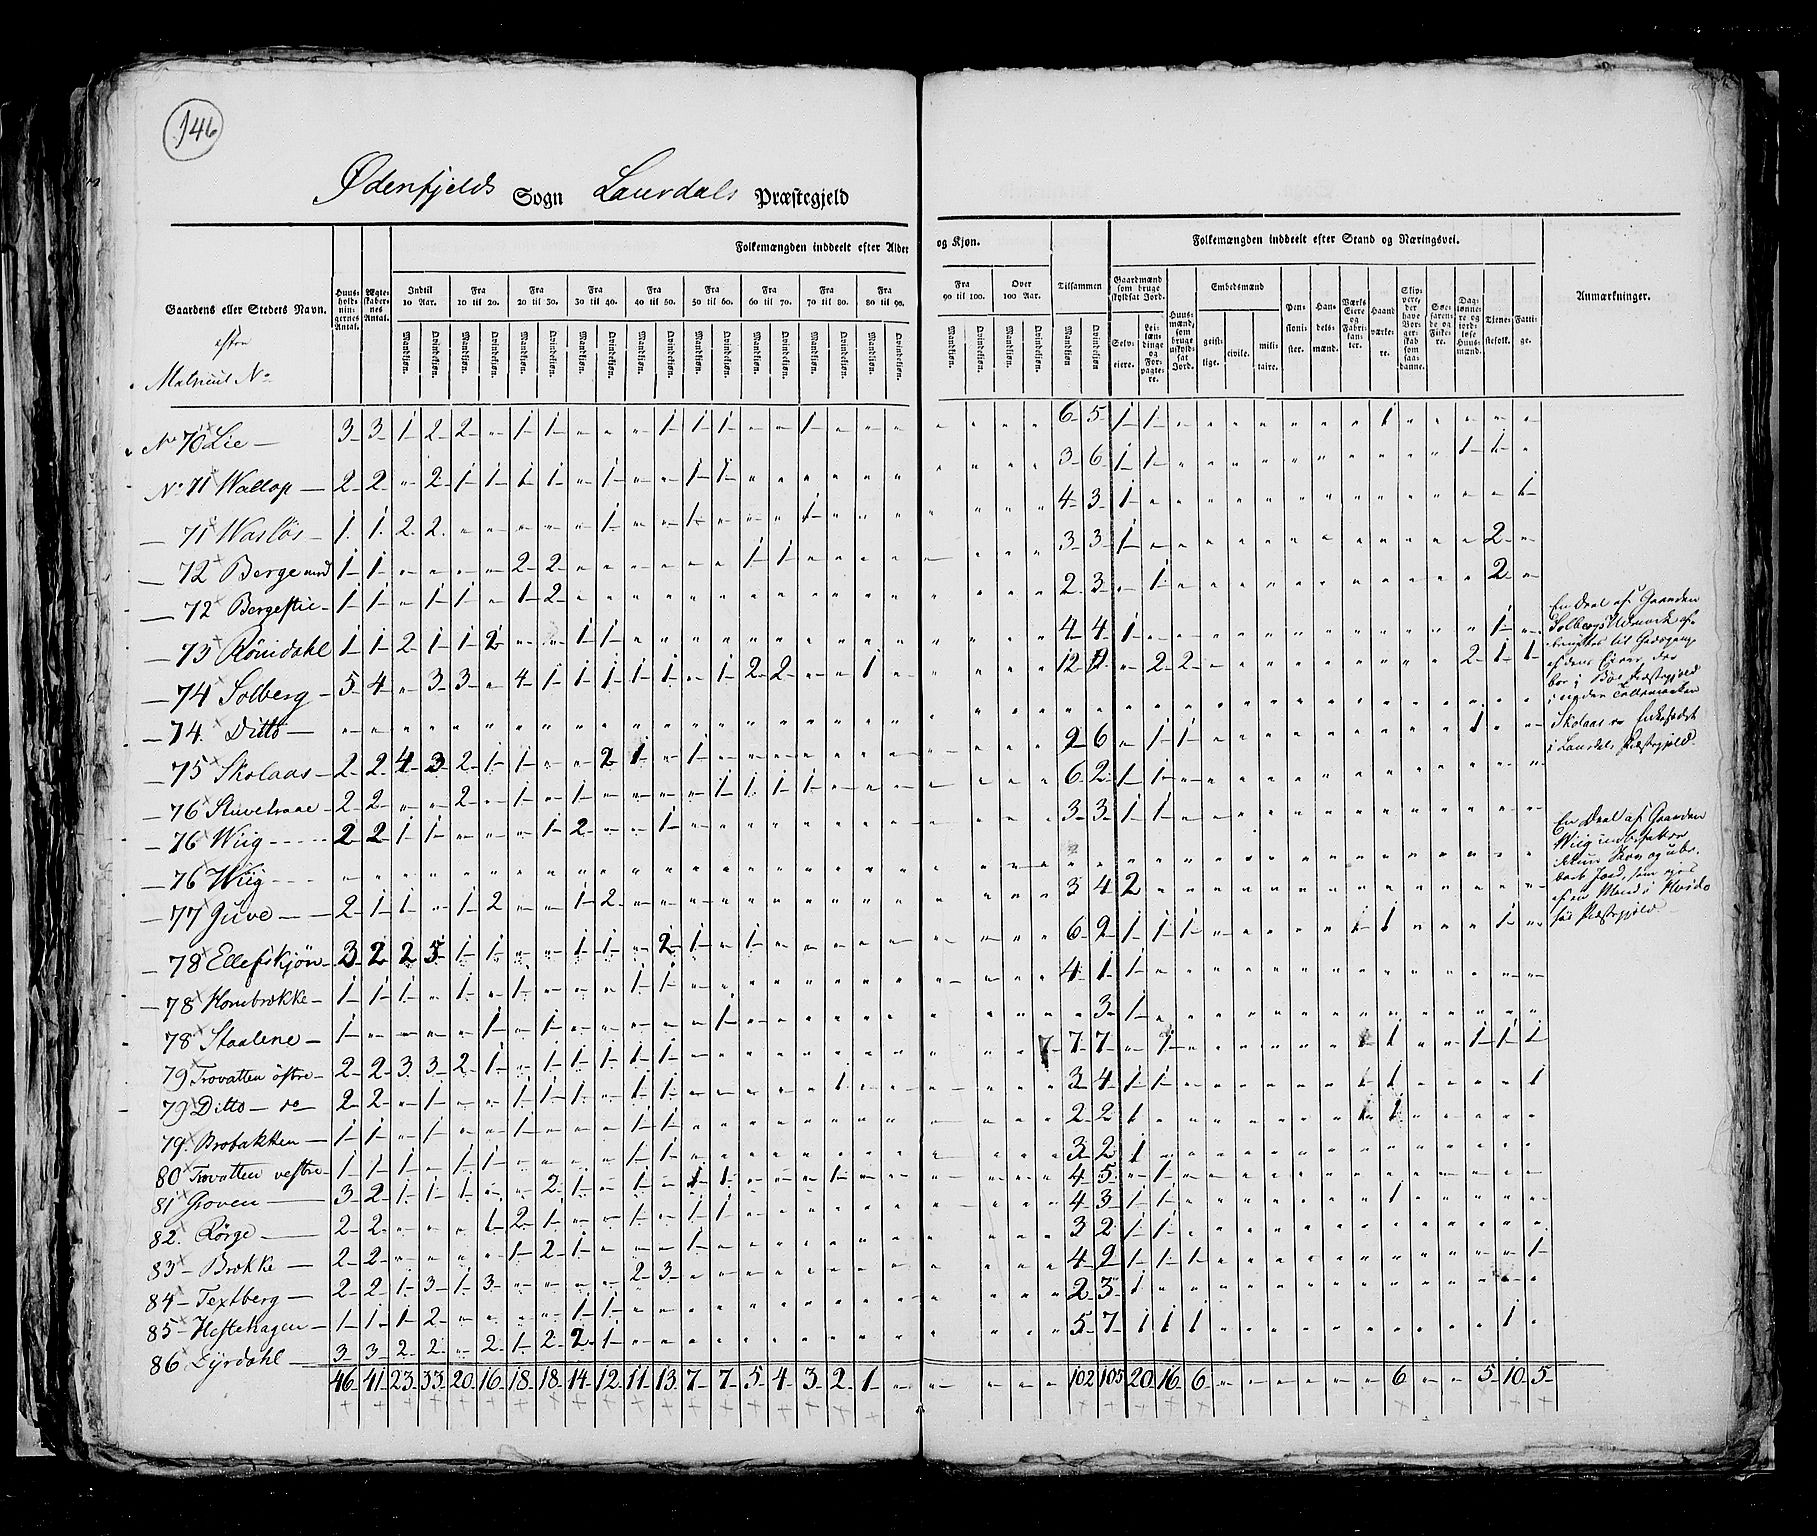 146
Ødenfjelds Sogn Laurdals Præstegjeld
Gaardens eller Stedets Navn.
efter
Matricul No
Huus-holdnin-gernes Antal.
Ægte-skaber-nes Antal.
Folkemængden inddeelt efter Alder og Kjøn.
Indtil 10 Aar.
Fra 10 til 20.
Fra 20 til 30.
Fra 30 til 40.
Fra 40 til 50.
Fra 50 til 60.
Fra 60 til 70.
Fra 70 til 80.
Fra 80 til 90.
Fra 90 til 100.
Over 100 Aar.
Mandkjøn. Qvindekjøn.
Tilsammen
Mandkjøn Qvindekjøn
Folkemængden inddeelt efter Stand og Næringsvei.
Gaardmænd som bruge skyldsat Jord.
Selv-eiere.
Lei-læn-dinge og For-pagte-re.
Huus-mænd, som bruge uskyld-sat Jord.
Embedsmænd
geist-lige.
civile.
mili-taire.
Pen-sioni-ster.
Han-dels-mænd.
Værks Eiere og Fabri-kan-ter.
Haand værke-re.
Skip-pere, der have Bor-ger-skab som saa-danne.
Søe-faren-de og Fiske-re.
Dag-lønne-re og jord-løse Huus-mænd.
Tjene-stefolk.
Fatti-ge.
Anmærkninger.
No 70 Lie 3 3 1 2 2 " 1 1 " " " 1 1 1 " " 1 " " " 6 5 1 1 1
No 71 Wallop 2 2 " 2 1 1 1 1 " 1 " " 1 1 3 6 1 1 1 1
71 Wasløs 1 1 2 2 1 1 1 4 3 1 1
72 Berge nord 1 1 2 2 1 1 3 3 1 2
72 Bergestie 1 1 " 1 1 " 1 2 2 3 " 1 2
73 Rönidahl 1 1 2 1 1 2 " " 1 1 4 4 1 1
74 Solberg 5 4 " 3 3 " 4 1 1 1 1 1 " 1 2 2 " " 1 12 " 2 2 2 1 1
74 Ditto
75 Skolaas 2 2 4 3 2 1 1 " " 2 1 " 1 9 6 " 1 1 1
76 Stuvetraae 2 2 " " 2 " 1 " 1 1 1 1 1 6 2 1 1
76 Wiig 2 2 1 1 " " " 1 2 " " 1 3 3 1 1
76 Wiig
77 Juve 2 1 1 " 1 2 " " 1 2 3 4 2
78 Ellefskjøn 3 2 2 5 1 1 " " 1 1 " 2 1 " 1 6 1 1 1 1 1 1
78 Hombrokke 1 1 1 " 1 " 1 " " " 1 1 4 1 1
78 Staalene 1 1 " 1 1 3 1
79 Trovatten østre 2 2 3 3 2 1 " 1 1 1 1 1 7 7 7 " 1 1 1 1 1
79 Ditto do 2 2 " 1 " " 1 1 1 " 1 1 1 3 4 1 1 1 1
79 Brobakken 1 1 " 1 " " 1 1 1 2 2 1 1
80 Trovatten vestre 1 1 1 " 1 1 1 1 3 2 1
81 Groven 3 2 1 1 1 " " 2 1 " 1 " 1 1 1 4 5 " 1
82 Rørge 2 2 " " " 1 2 1 " " 1 " 1 1 4 3 1 1 1
83 Brokke 2 2 " " " " 1 2 1 1 3 2 1 1
84 Textberg 2 2 1 3 1 3 2 3 4 1 1 1 1
85 Heftehagen 1 1 1 2 1 1 2 3 1
86 Lyrdahl 3 3 2 2 " 2 1 2 2 1 5 7 1 1 1 1
46 41 23 33 20 16 18 18 14 12 11 13 7 7 5 4 3 2 1 102 105 20 16 6 6 5 10 5
En Deel af Gaarden
Solberg Udmark af-
benyttes til Havegang
af dens Eier, der
bor i Bøe Præstegjeld
i nedre Tellemarken
i Laurdals Præstegjeld.
En Deel af Gaarden
Wiig
Skov og
Jord, som eies
af en Mand i Hvide-
søe Præstegjeld.